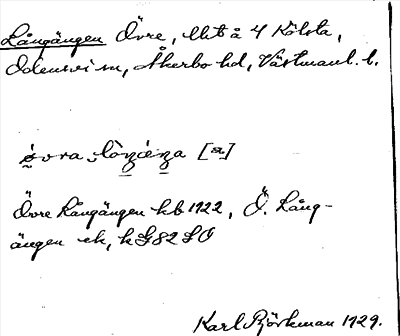 Långängen Övre, Utå 4 Kölsta,
Odensvi sn, Åkerbo hd, Västmanl. l.
Övre Långängen kb 1922, Ö. Lång-
ängen ek, k G82 SO
Karl Björkman 1929.